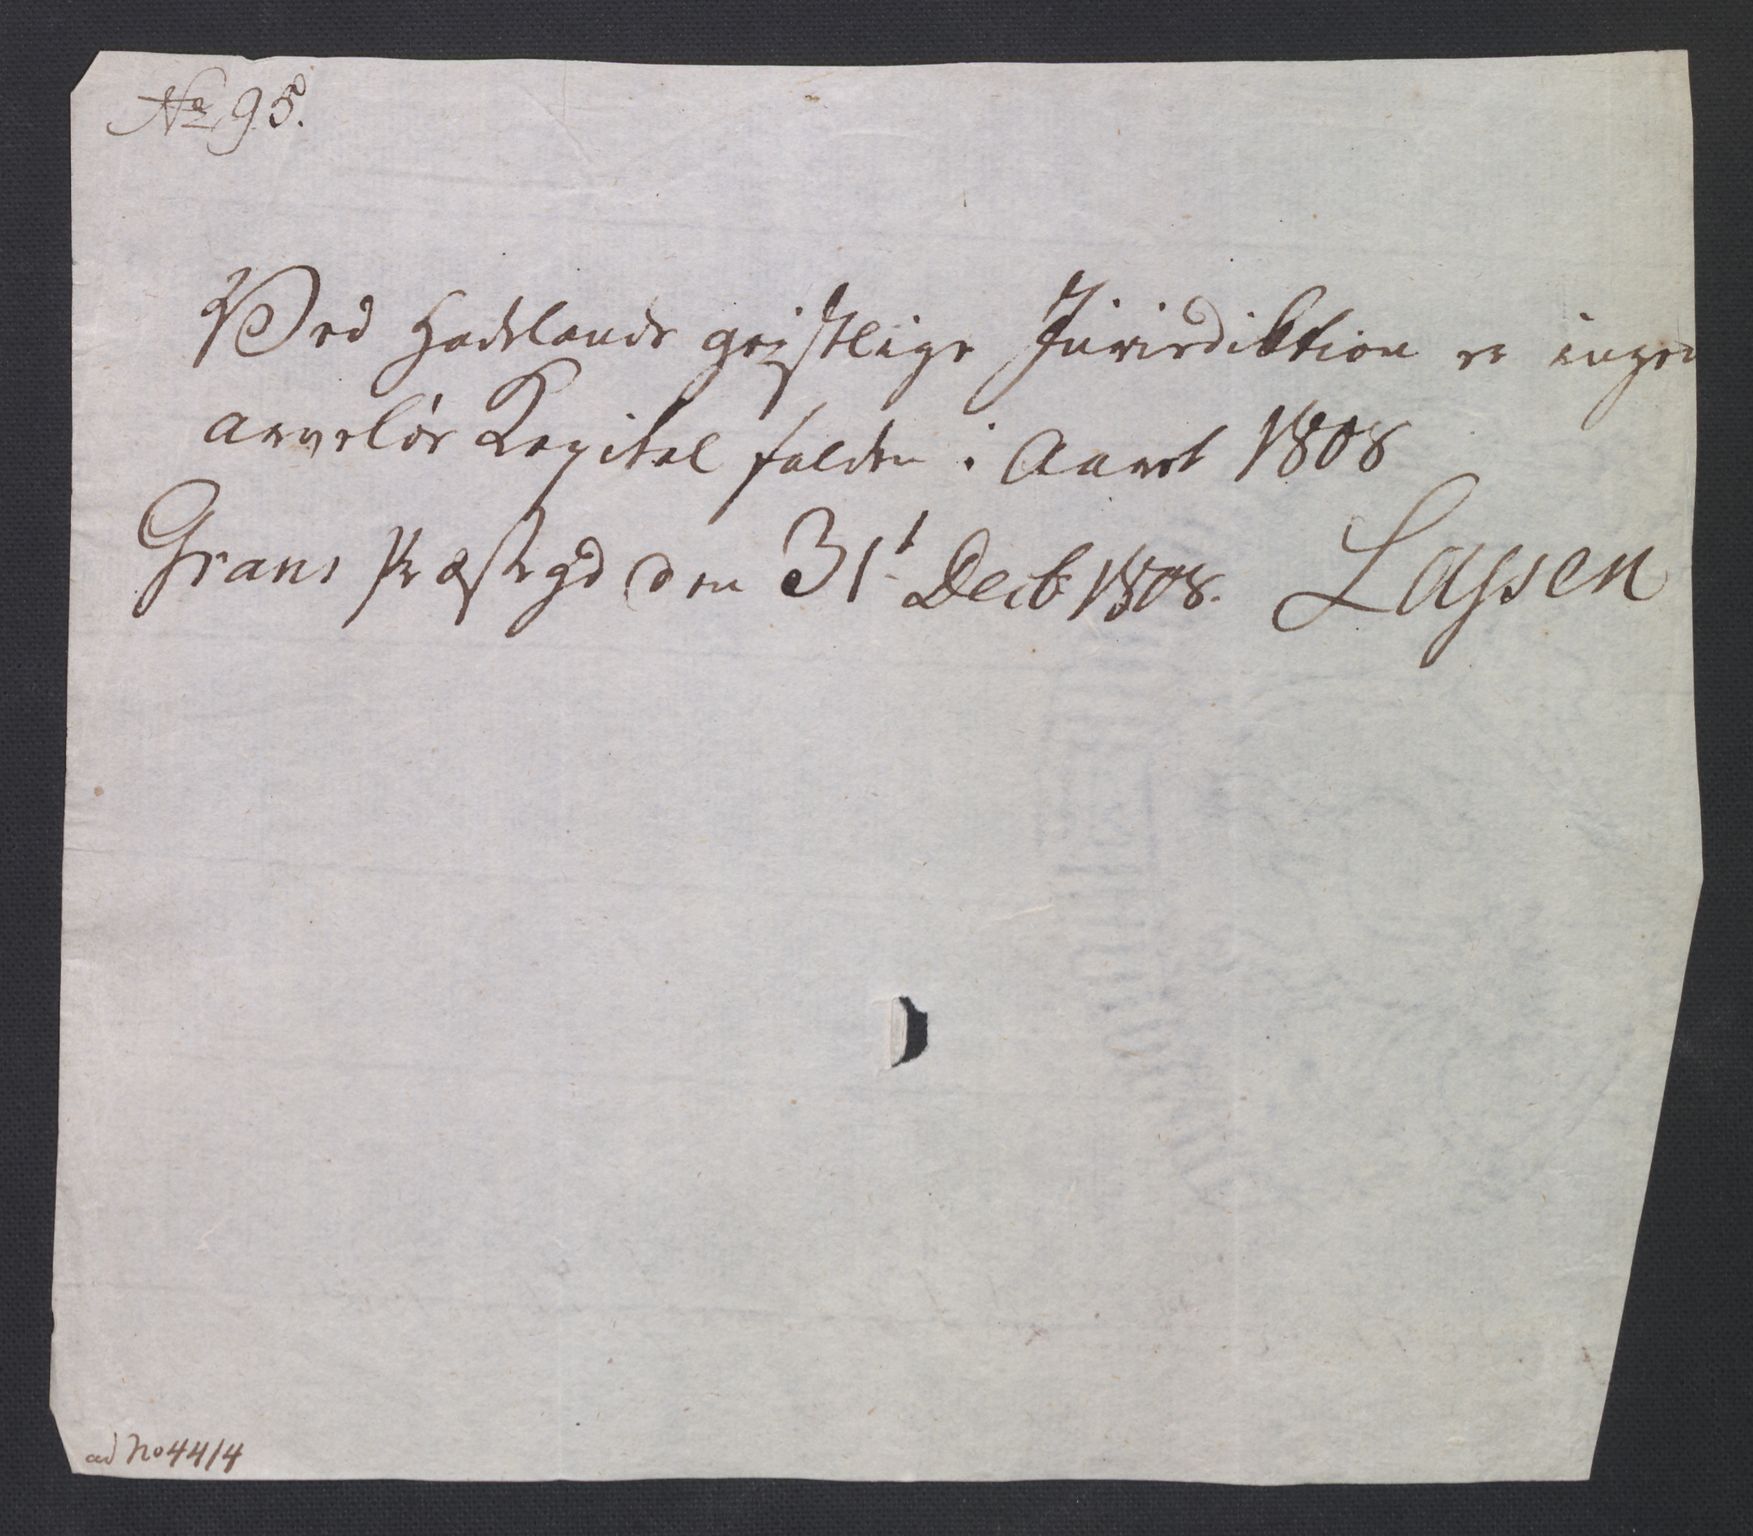 No 95.
Ved Hadelands geistlige Jurisdiktion er ingen
arveløs Kapital falden i Aaret 1808
Grans Præstegd den 31t Decb 1808. Lassen
ad No 4414